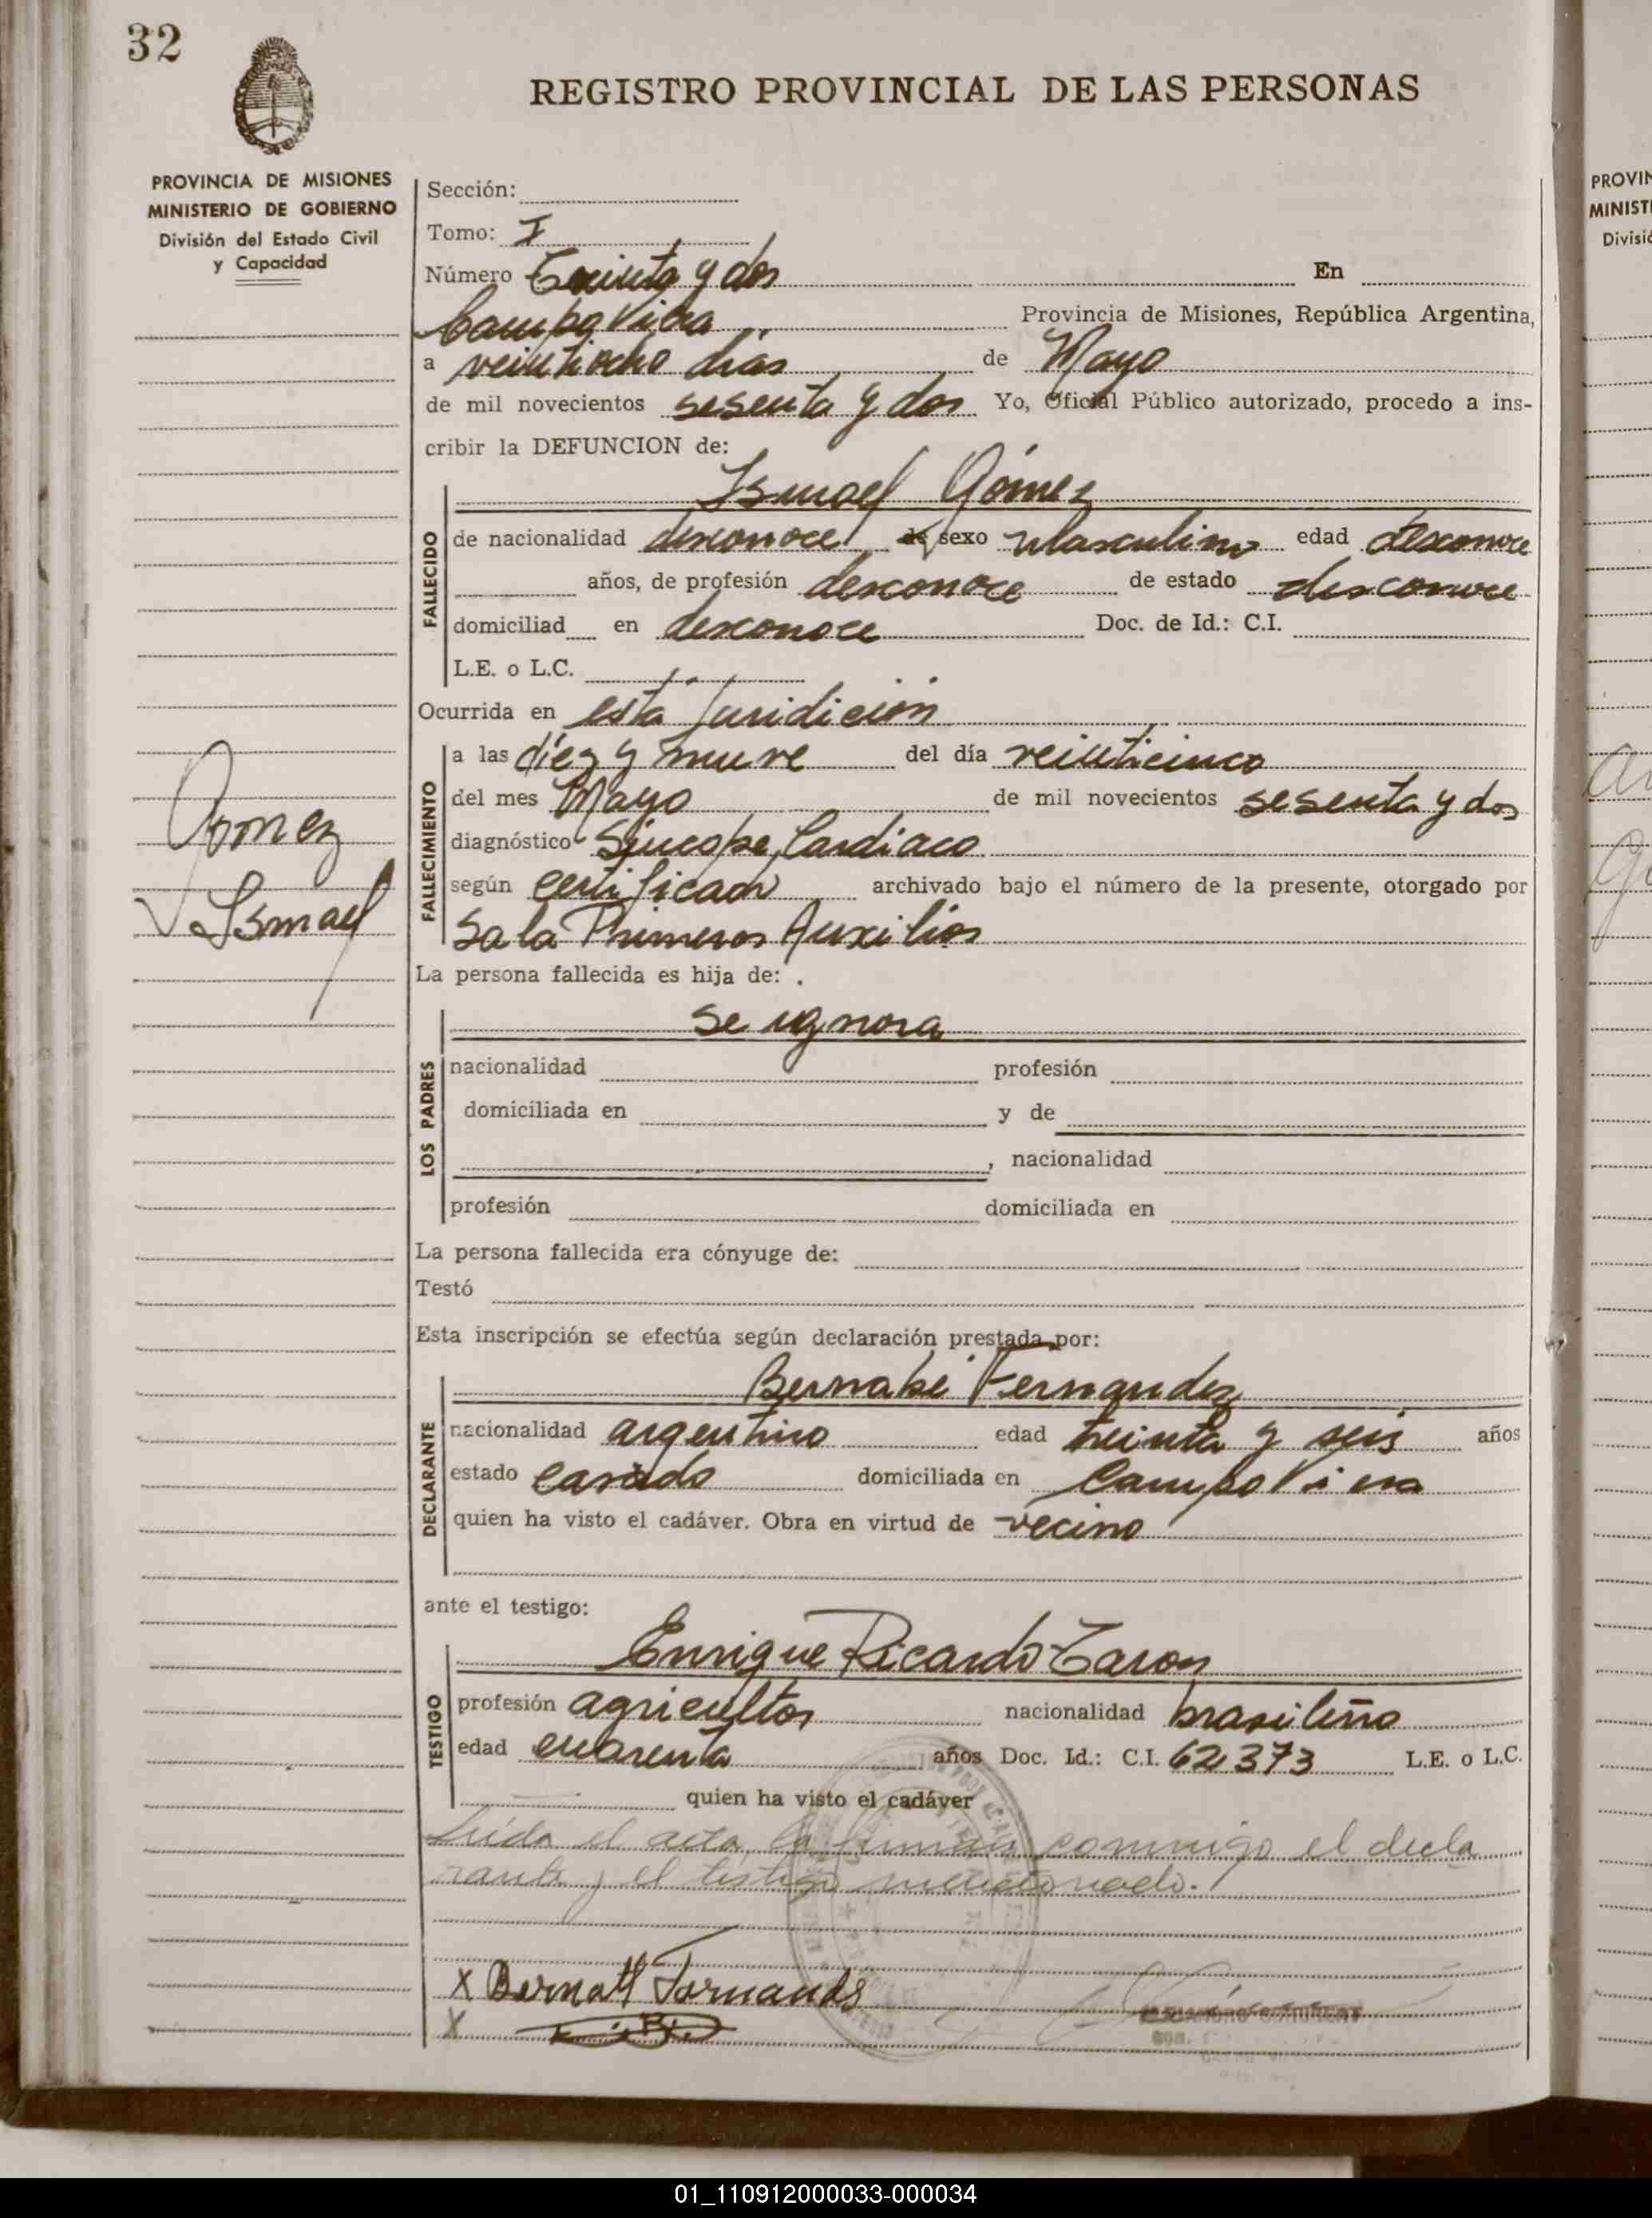 32
REGISTRO PROVINCIAL DE LAS PERSONAS
PROVINCIA DE MISIONES
MINISTERIO DE GOBIERNO
División del Estado Civil
y Capacidad
Sección:
Tomo: I
Número Treinta y dos En
Campo Viera Provincia de Misiones, República Argentina,
a veintiocho días de Mayo
de mil novecientos sesenta y dos Yo, Oficial Público autorizado, procedo a ins-
cribir la DEFUNCION de:
Ismael Gómez
FALLECIDO
de nacionalidad desconoce de sexo masculino edad desconoce
años, de profesión desconoce de estado desconoce
domiciliad en desconoce Doc. de Id.: C.I.
L.E. o L.C.
Ocurrida en esta Juridición
FALLECIMIENTO
a las diez y nueve del día veinticinco
del mes Mayo de mil novecientos sesenta y dos
diagnóstico Síncope Cardiaco
según certificado archivado bajo el número de la presente, otorgado por
Sala Primeros Auxilios
Gomez
Ismael
La persona fallecida es hija de:
se ignora
LOS PADRES
nacionalidad profesión
domiciliada en y de
, nacionalidad
profesión domiciliada en
La persona fallecida era cónyuge de:
Testó
Esta inscripción se efectúa según declaración prestada por:
Bernabé Fernandez
DECLARANTE
nacionalidad argentino edad treinta y seis años
estado casado domiciliada en Campo Viera
quien ha visto el cadáver. Obra en virtud de vecino
ante el testigo:
Enrique Ricardo Taron
TESTIGO
profesión agricultor nacionalidad brasileño
edad cuarenta años Doc. Id.: C.I. 62373 L.E. o L.C.
quien ha visto el cadáver
Leída el acta, la firman conmigo el decla
rante y el testigo mencionado.
X Bernabe Fernandes
X
PROVIN
MINIST
Divisió
01_110912000033-000034